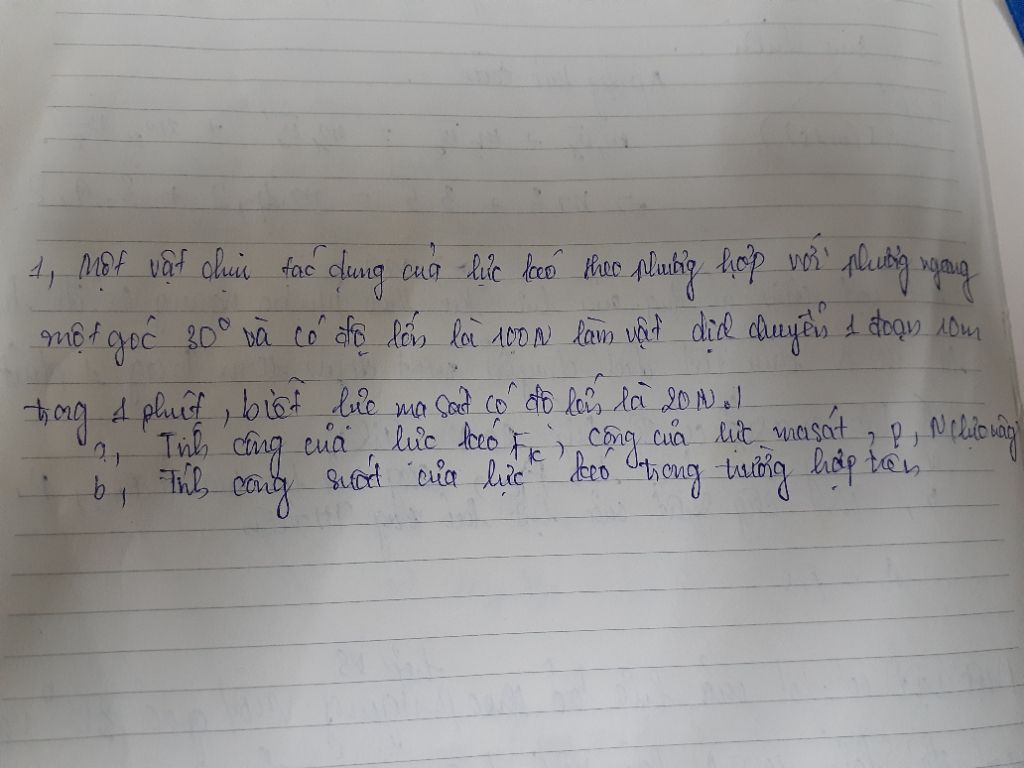 1, Một vật chịu tác dụng của lực kéo theo phương hợp với phương ngang
một góc 30° và có độ lớn là 100N làm vật dịch chuyển 1 đoạn 10m
trong 1 phút, biết lực ma sát có độ lớn là 20N.!
a, Tính công của lực kéo Fk, công của lực ma sát, P, N (lực nâng
b, Tính công suất của lực kéo trong trường hợp trên